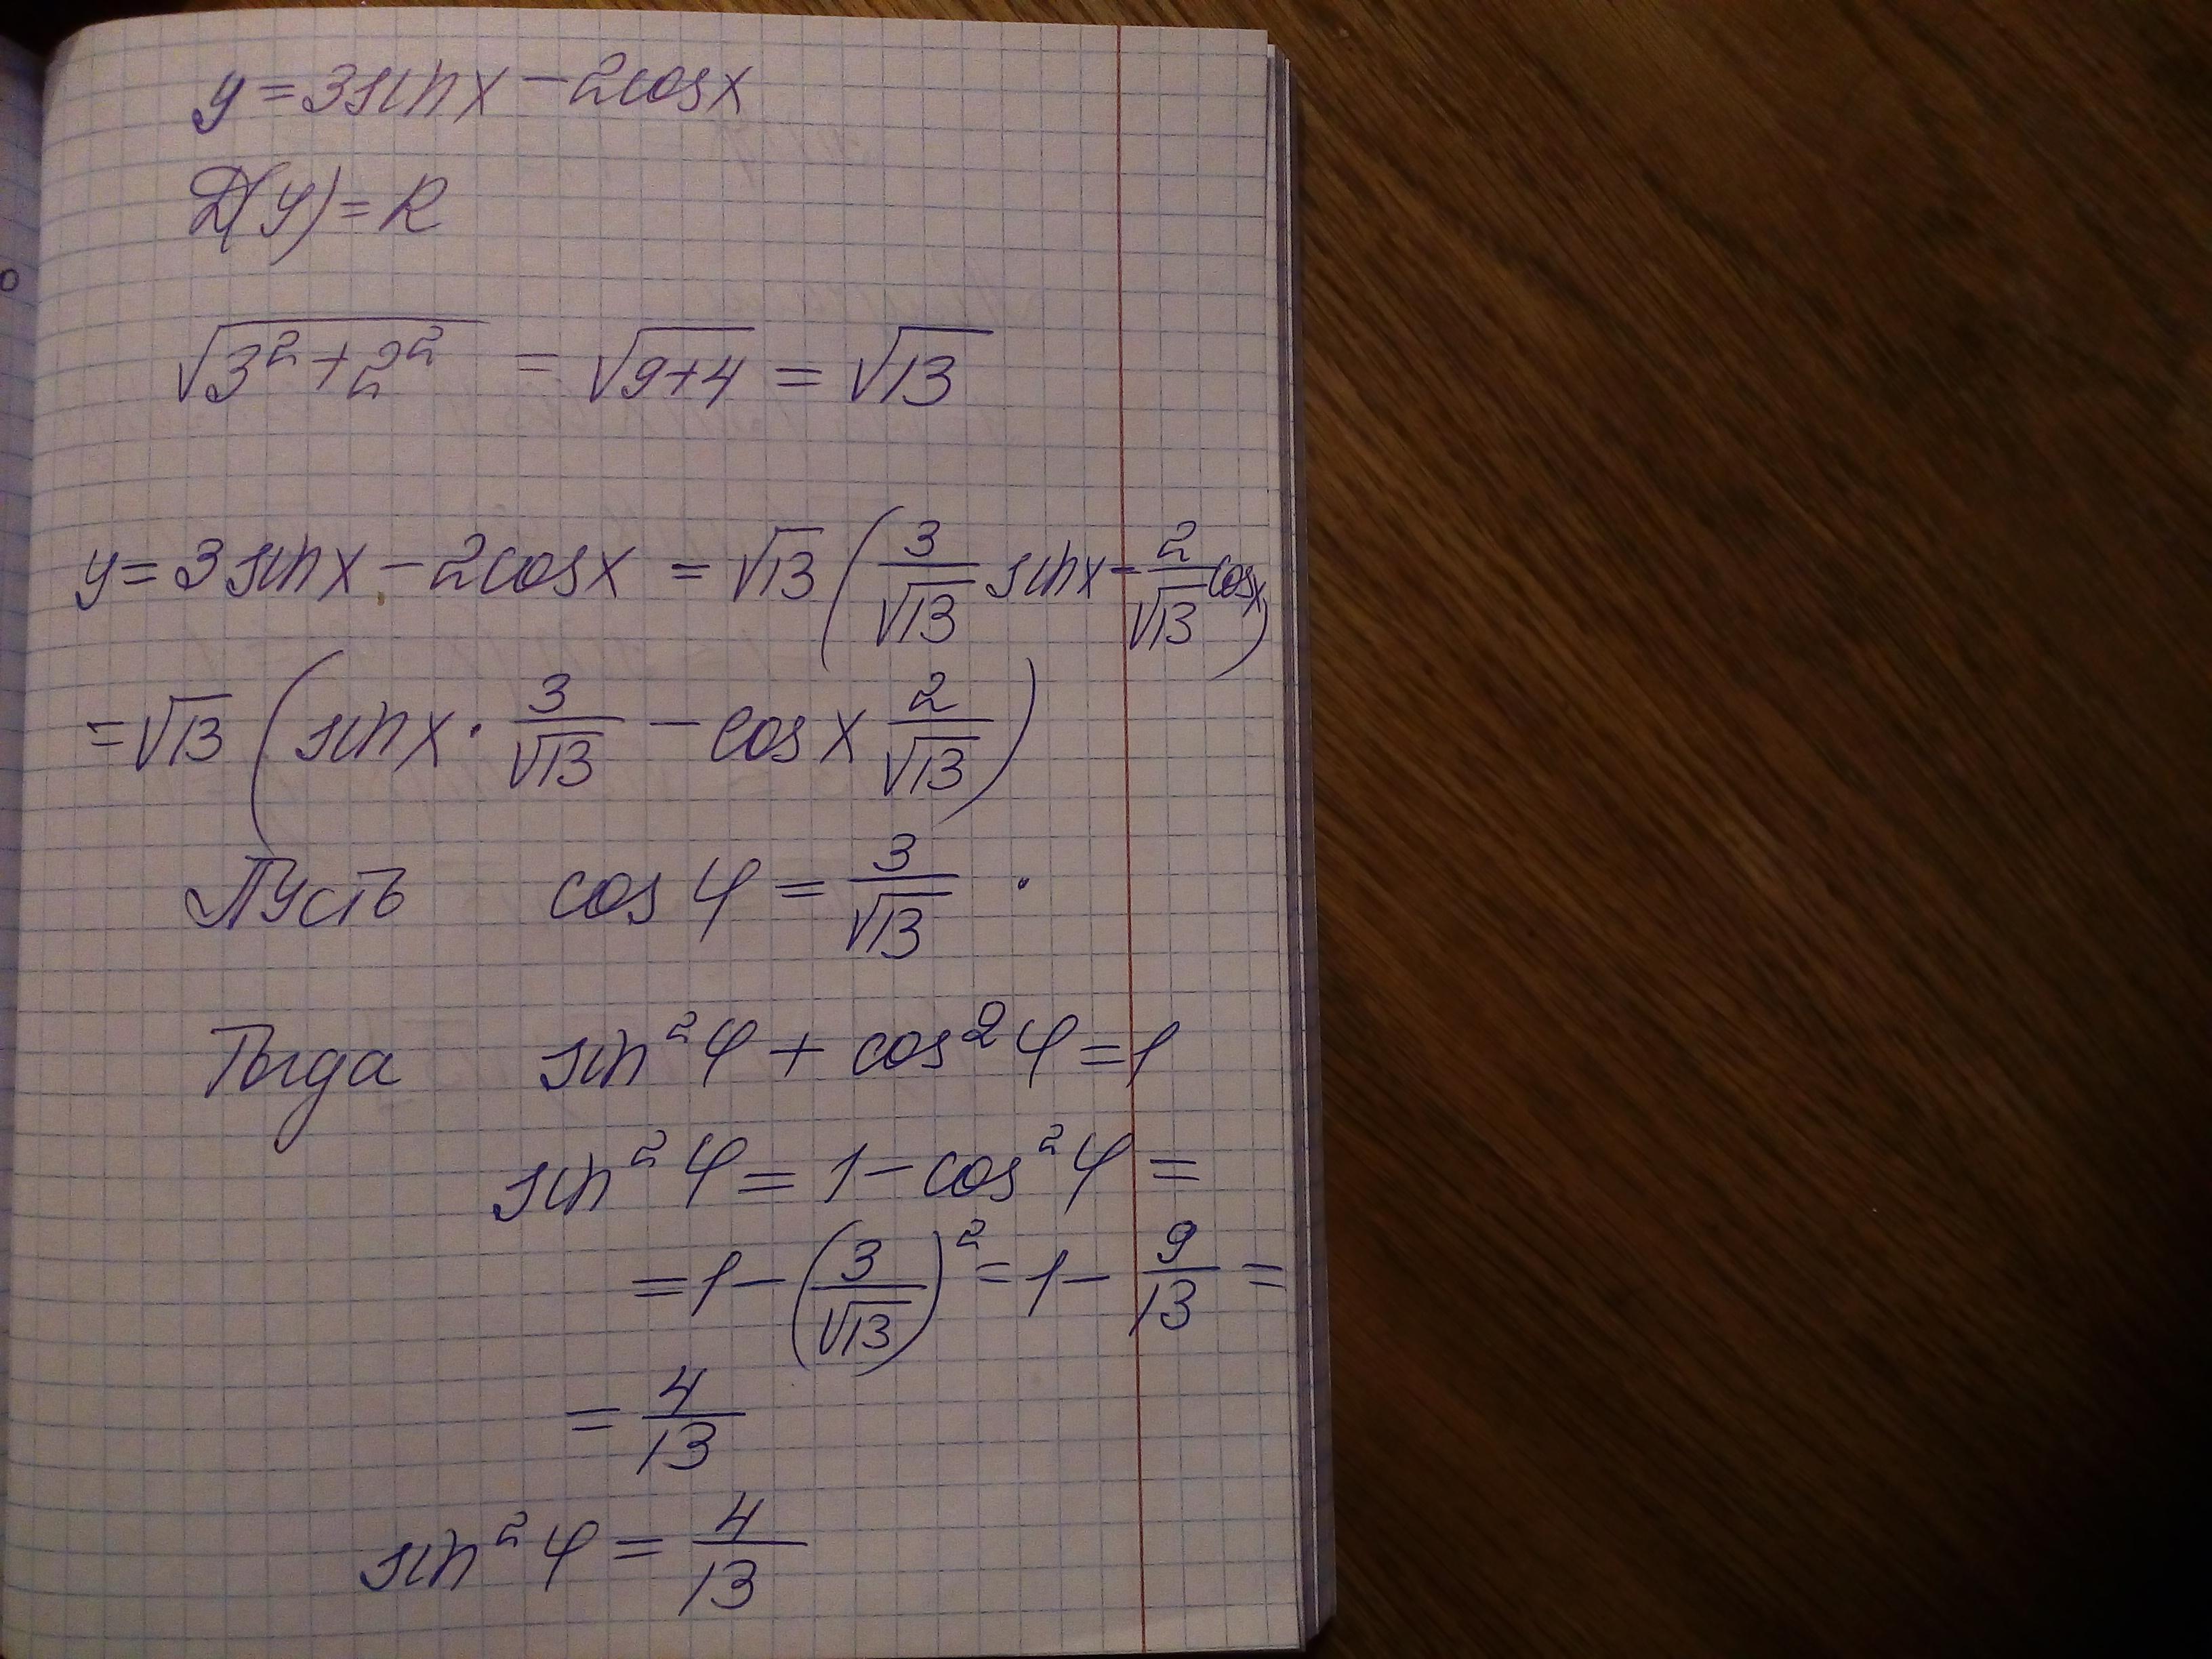 y = 3 sin x - 2 cos x
D(y) = R
√(3² + 2²) = √(9+4) = √13
y = 3 sin x - 2 cos x = √13 (3/√13 sin x - 2/√13 cos x)
= √13 (sin x · 3/√13 - cos x 2/√13)
Пусть cos φ = 3/√13 .
Тогда sin² φ + cos² φ = 1
sin² φ = 1 - cos² φ =
= 1 - (3/√13)² = 1 - 9/13 =
= 4/13
sin² φ = 4/13